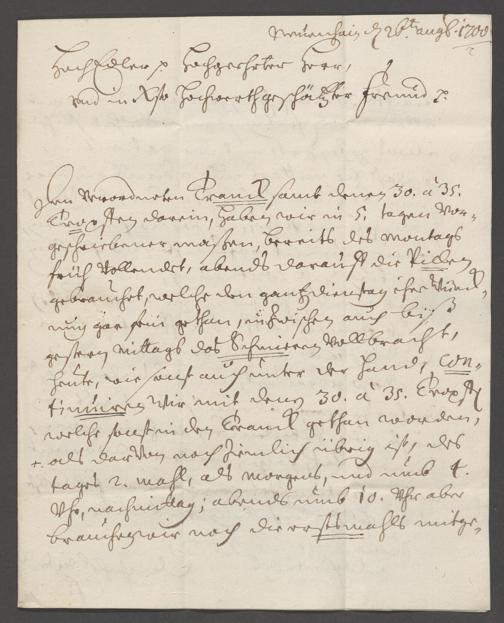 Neuenhain d. 26t. augst. 1700
HochEdler p Hochgeehrter Herr,
und in Xsto Hochwerthgeschätzter Freund p.
Den verordneten Tranck sampt denen 30. à 35.
Tropffen darein, haben wir in 5. tagen vor-
geschriebener maßen, bereits des Montags
früh vollendet, abends darauff die Pillen
gebrauchet, welche den gantzen dienstag ihre
nun gar fein gethan, inzwischen auch biß
gestern Mittags das Schmieren vollbracht,
heute, wie sonst auch unter der Hand, con-
tinuiren wir mit denen 30. à 35. Tropffen
welche sonst in den Tranck gethan worden,
als darvon noch ziemlich übrig ist, des
tages 2. mahl, als morgens, und umb 4.
Uhr, nachmittag; abends umb 10. Uhr aber
brauchen wir noch die erstmahls mitge-